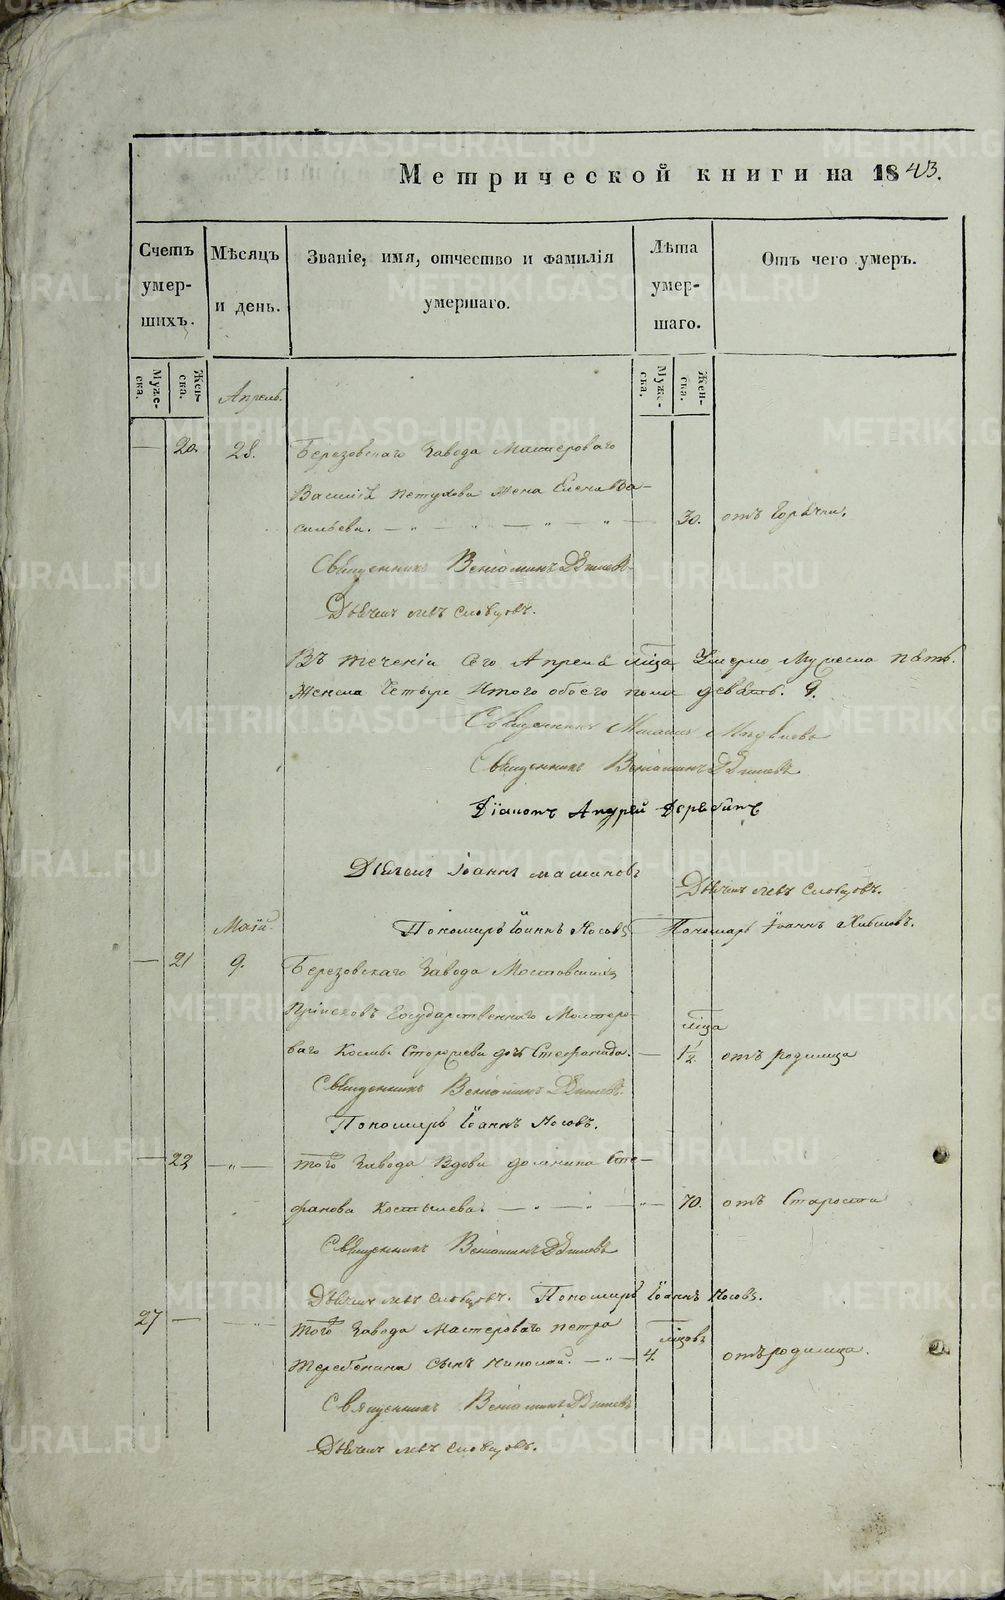 Метрической книги на 1843.
Счетъ умер- шихъ.
Мѣсяцъ и день.
Званіе, имя, отчество и фамилія умершаго.
Лѣта умер- шаго.
Отъ чего умеръ.
Муже- ска.
Жен- ска.
Муже- ска.
Жен- ска.
Апрель.
— 20. 28. Березовскаго Завода Мастероваго
Василія Петухова жена Елена Ва-
сильева. — 30. отъ Горячки.
Священникъ Веніаминъ
Дьячекъ Левъ Словцовъ.
Въ теченіи сего Апреля мѣца Умерло Мужеска пять.
Женска Четыре Итого обоего пола девять. 9.
Священникъ
Священникъ Веніаминъ
Діаконъ Андрей Дерябинъ
Дьячекъ Іоаннъ Маминовъ
Дьячекъ Левъ Словцовъ.
Маій.
Пономарь Іоаннъ Носовъ Пономарь Іоаннъ
— 21 9. Березовскаго Завода Мостовскихъ
Пріисковъ Государственнаго Мастеро-
мѣца
ваго Космы Сторожева дочь Стефанида. — 1½ отъ родимца
Священникъ Веніаминъ
Пономарь Іоаннъ Носовъ.
— 22 — „ — того Завода Вдова Сте-
фанова Костылева. — „ — 70. отъ Старости
Священникъ Веніаминъ
Дьячекъ Левъ Словцовъ. Пономарь Іоаннъ Носовъ.
27 — того Завода Мастероваго Петра
мѣцовъ
Теребенина сынъ Николай. — „ — 4. отъ родимца.
Священникъ Веніаминъ
Дьячекъ Левъ Словцовъ.
METRIKI.GASO-URAL.RU